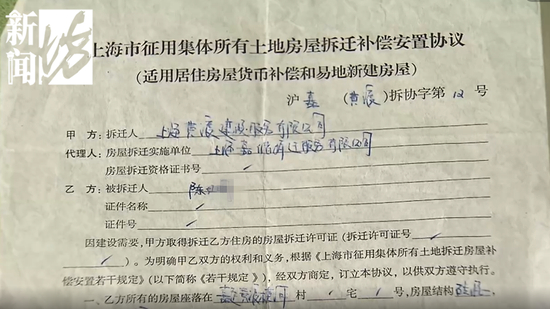 新闻坊
上海市征用集体所有土地房屋拆迁补偿安置协议
(适用居住房屋货币补偿和易地新建房屋)
沪 嘉 (黄渡) 拆协字第 12 号
甲 方: 拆迁人 上海黄渡建设服务有限公司
代理人: 房屋拆迁实施单位 上海嘉 拆迁服务有限公司
房屋拆迁资格证书号
乙 方: 被拆迁人 陈
证件名称
证件号
因建设需要,甲方取得拆迁乙方住房的房屋拆迁许可证(拆迁许可证号
)。为明确甲乙双方的权利和义务,根据《上海市征用集体所有土地拆迁房屋补
偿安置若干规定》(以下简称《若干规定》),经双方商定,订立本协议,以供双方遵守执行。
一、乙方所有的房屋座落在 村 宅 号,房屋结构